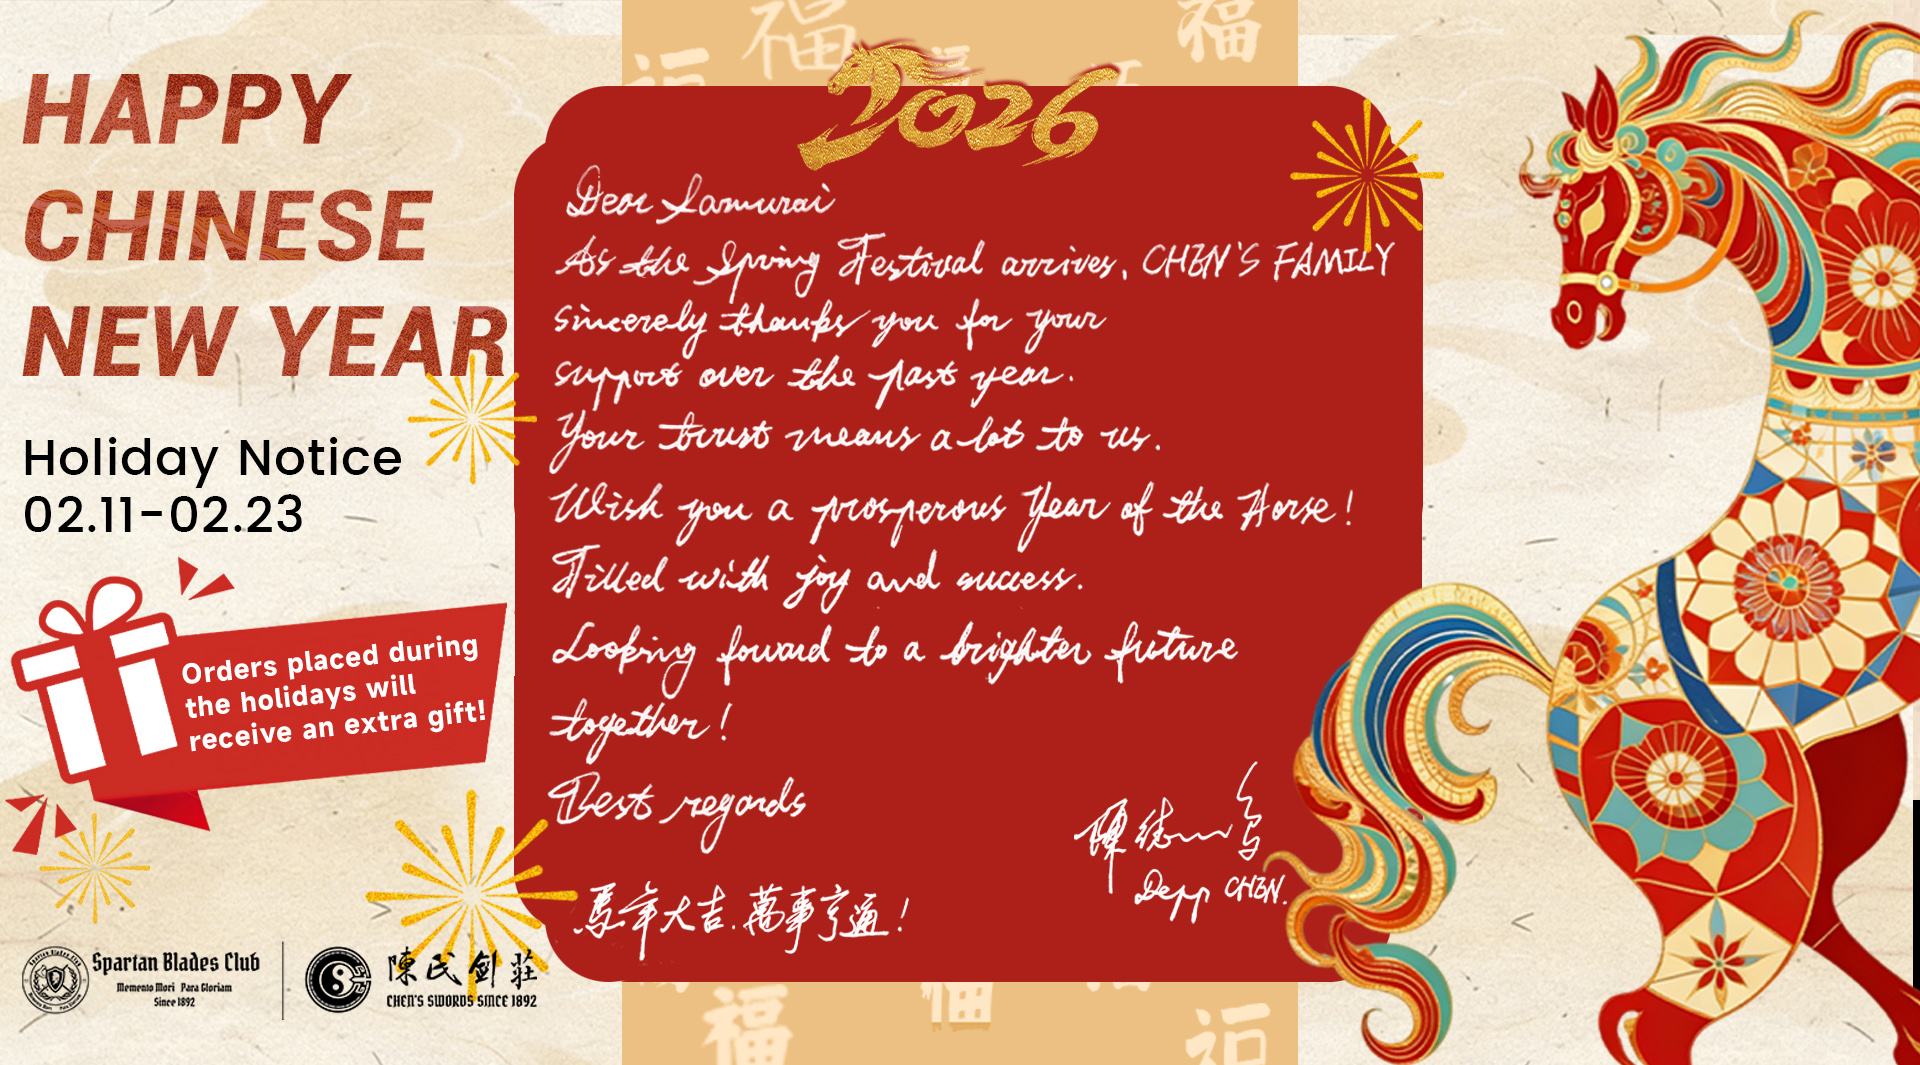 HAPPY
CHINESE
NEW YEAR
Holiday Notice
02.11-02.23
Orders placed during
the holidays will
receive an extra gift!
Spartan Blades Club
Memento Mori Para Gloriam
Since 1892
陳氏劍莊
CHEN'S SWORDS SINCE 1892
福
福
福
2026
Dear Samurai
As the Spring Festival arrives, CHEN'S FAMILY
sincerely thanks you for your
support over the past year.
Your trust means a lot to us.
Wish you a prosperous Year of the Horse!
Filled with joy and success.
Looking foward to a brighter future
together!
Best regards
Depp CHEN.
馬年大吉.萬事亨通!
福
福
福